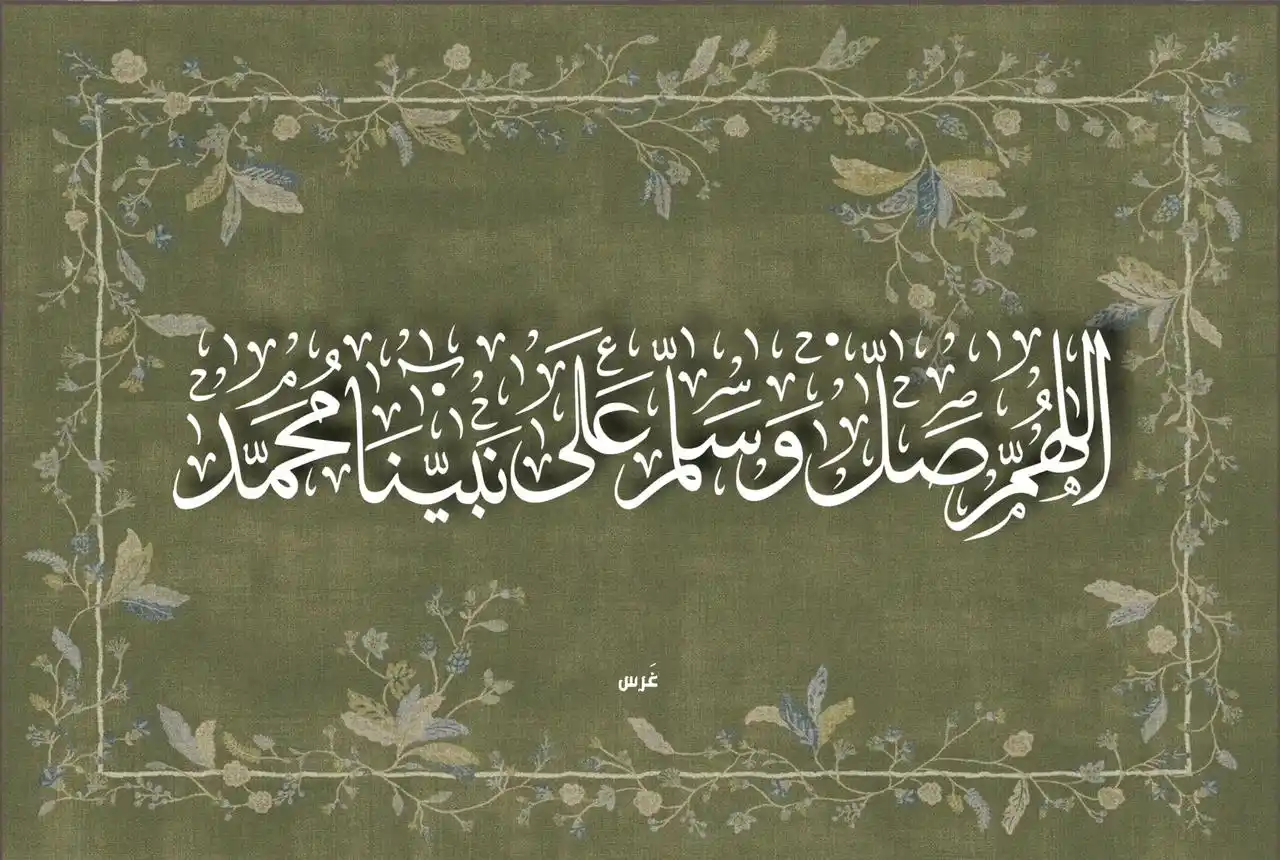 اللهم صل وسلم على نبينا محمد
غرس